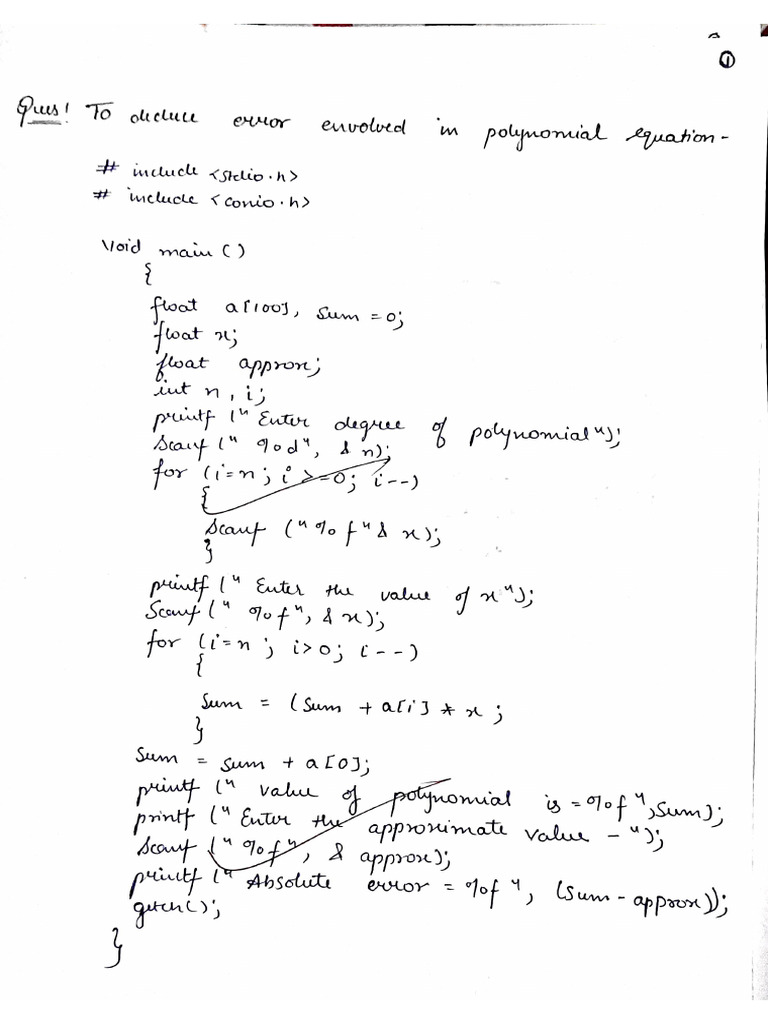 ①
Ques! To deduce error envolved in polynomial equation-
# include <stdio.h>
# include <conio.h>
void main ()
{
float a[100], sum = 0;
float x;
float approx;
int n, i;
printf ("Enter degree of polynomial");
scanf (" %d", & n);
for (i=n; i>=0; i--)
{
scanf ("%f" & x);
}
printf (" Enter the value of x");
scanf (" %f", & x);
for (i=n; i>0; i--)
{
sum = (sum + a[i] * x ;
}
sum = sum + a[0];
printf (" value of polynomial is = %f", sum);
printf (" Enter the approximate value - ");
scanf (" %f", & approx);
printf (" Absolute error = %f", (sum - approx));
getch();
}